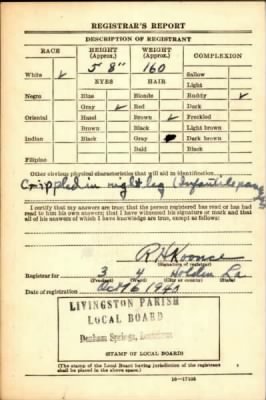 REGISTRAR'S REPORT
DESCRIPTION OF REGISTRANT
RACE
HEIGHT (Approx.)
WEIGHT (Approx.)
COMPLEXION
5 8" 160
White ✓ EYES HAIR Sallow
Light
Negro Blue Blonde Ruddy ✓
Gray ✓ Red Dark
Oriental Hazel Brown ✓ Freckled
Brown Black Light brown
Indian Black Gray Dark brown
Bald Black
Filipino
Other obvious physical characteristics that will aid in identification
Crippled in right leg (Infantile
I certify that my answers are true; that the person registered has read or has had
read to him his own answers; that I have witnessed his signature or mark and that
all of his answers of which I have knowledge are true, except as follows:
R H Koonce
(Signature of registrar)
Registrar for 3 4 Holden La
(Precinct) (Ward) (City or county) (State)
Date of registration Oct 16 1940
LIVINGSTON PARISH
LOCAL BOARD
Denham Springs, Louisiana
STAMP OF LOCAL BOARD
(The stamp of the Local Board having jurisdiction of the registrant
shall be placed in the above space.)